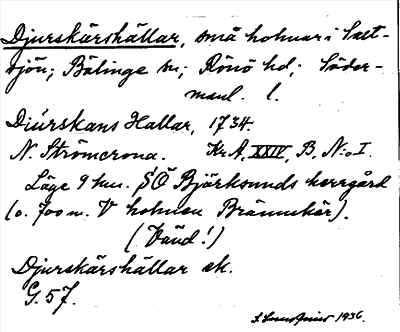 Djurskärshällar, små holmar i Salt-
sjön; Bälinge sn; Rönö hd; Söder-
manl. l.
Diurskans Hallar, 1734.
N. Strömcrona. Kr.A, XXIV, B, N:o I.
Läge 9 km. SÖ Björksunds herrgård
(o. 700 m. V holmen Brännskär).
(Vänd!)
Djurskärshällar ek.
G. 57.
1936.